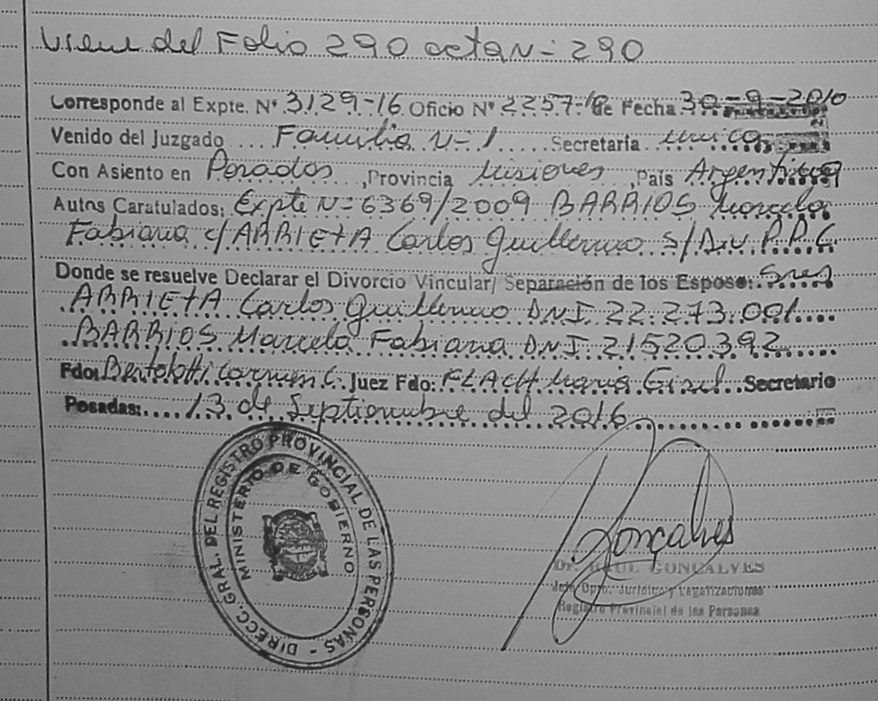 Viene del Folio 290 acta N- 290
Corresponde al Expte. N° 3129-16 Oficio N° 2257-10 de Fecha 30-9-2010
Venido del Juzgado ... Familia N- 1 ..... Secretaría unica
Con Asiento en Posadas ,Provincia Misiones ,País Argentina
Autos Caratulados: Expte N- 6369/2009 BARRIOS Marcela
Fabiana c/ ARRIETA Carlos Guillermo S/ Div. P.P.C.
Donde se resuelve Declarar el Divorcio Vincular/ Separación de los Esposo: Sres
ARRIETA Carlos Guillermo DNI 22.273.001
BARRIOS Marcela Fabiana DNI 21520392
Fdo: Bertolotti Carmen C. Juez Fdo: FLACH Maria Gisel Secretario
Posadas: 13 de Septiembre del 2016
DIRECC. GRAL. DEL REGISTRO PROVINCIAL DE LAS PERSONAS -
MINISTERIO DE GOBIERNO
Gonçalves
Dr. RAUL GONCALVES
Jefe Dpto. Jurídico y Legalizaciones
Registro Provincial de las Personas